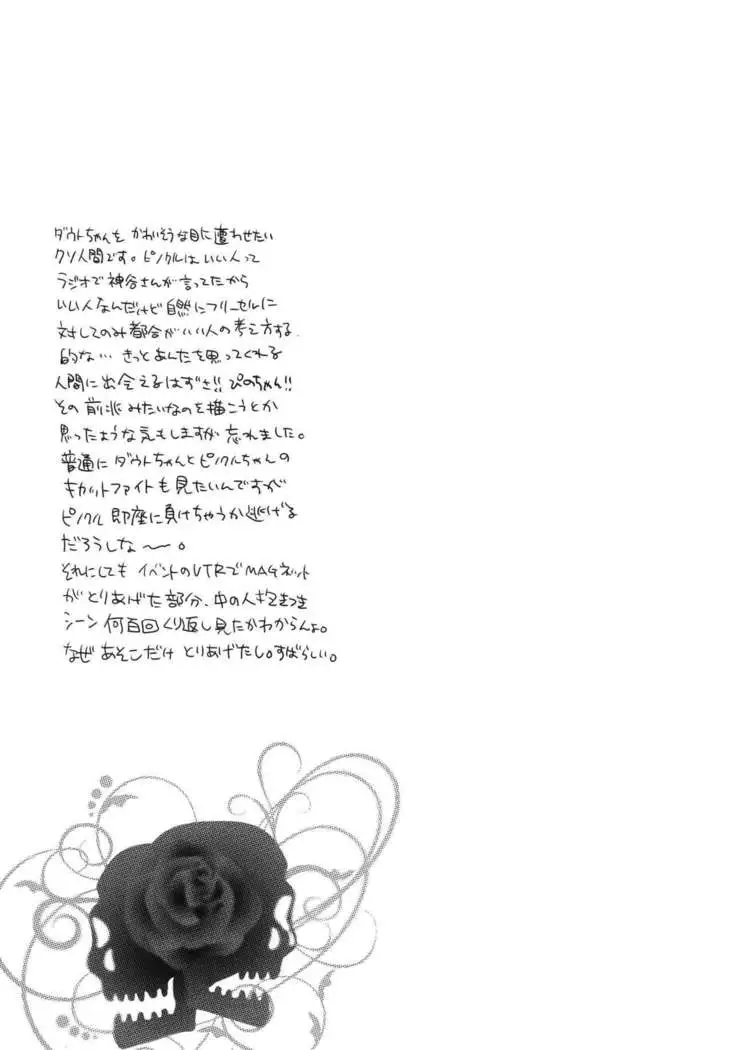 ダウトちゃんを かわいそうな目に遭わせたい
クソ人間です。ピノクルは いい人って
ラジオで神谷さんが言ってたから
いい人なんだけど 自然にフリーセルに
対してのみ都合がいい人の考え方する
的な… きっとあんたを思ってくれる
人間に出会えるはずさ!! ぴのちゃん!!
その 前兆みたいなのを描こうとか
思ったような気もしますが 忘れました。
普通に ダウトちゃんとピノクルちゃんの
キャットファイトも見たいんですが
ピノクル 即座に負けちゃうか逃げる
だろうしな〜。
それにしても イベントのVTRでMAGネット
がとりあげた部分、中の人抱きつき
シーン 何百回くり返し見たかわからんよ。
なぜ あそこだけ とりあげたし。すばらしい。